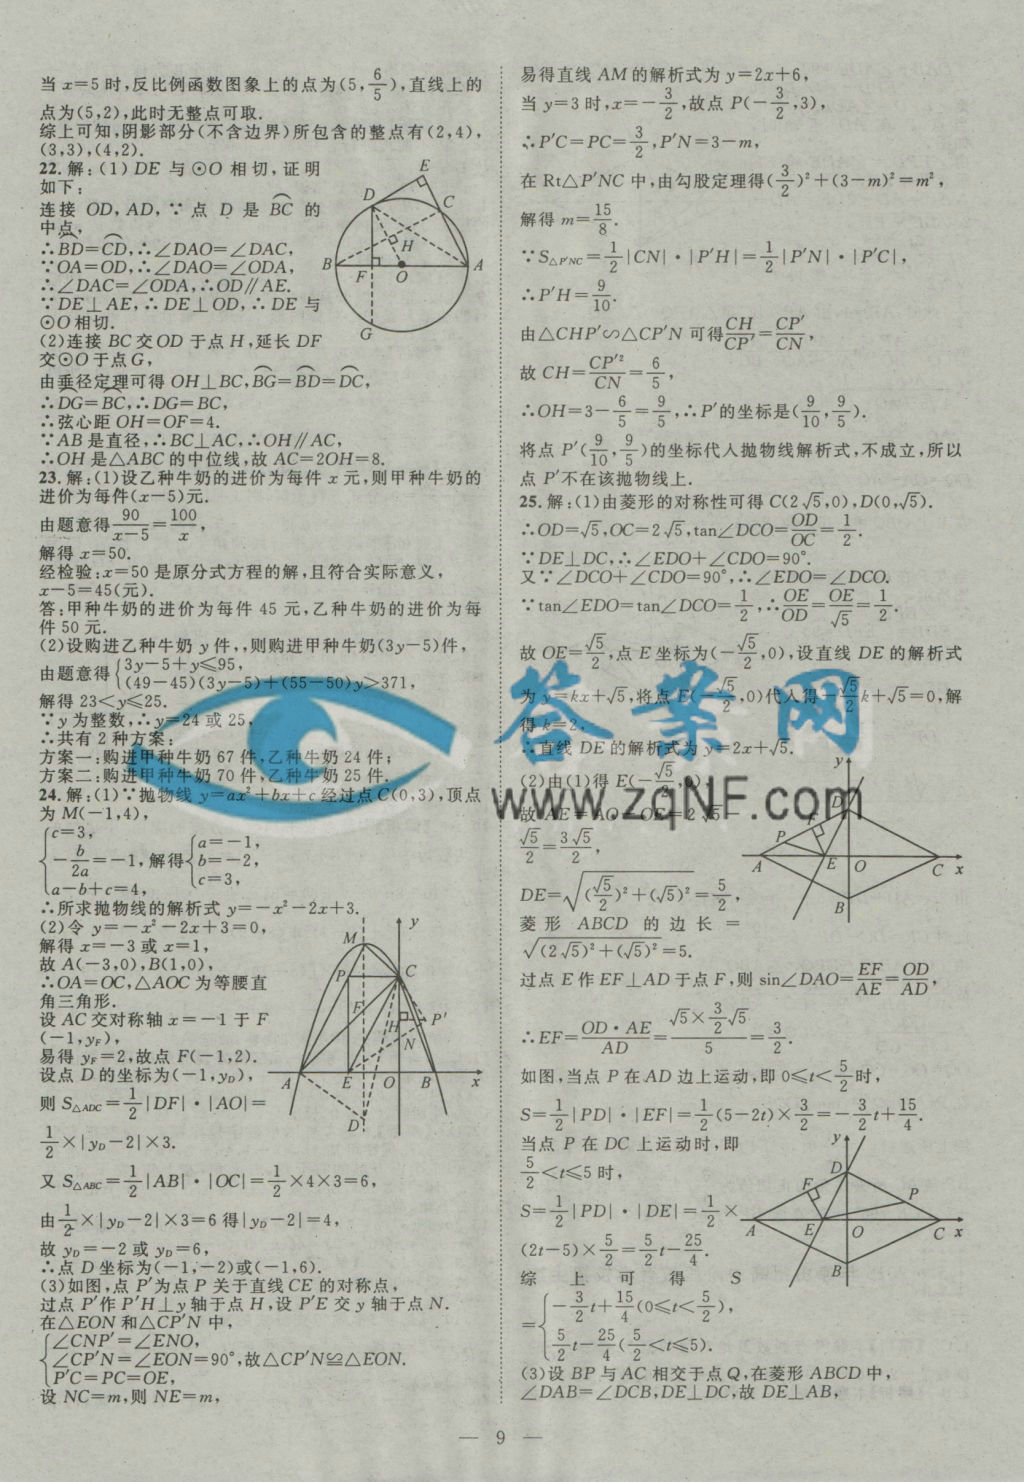 当x=5时,反比例函数图象上的点为(5,6/5),直线上的
点为(5,2),此时无整点可取.
综上可知,阴影部分(不含边界)所包含的整点有(2,4),
(3,3),(4,2).
22.解:(1)DE与⊙O相切,证明
如下:
连接OD,AD,∵点D是⌒BC的
中点,
∴⌒BD=⌒CD,∴∠DAO=∠DAC,
∵OA=OD,∴∠DAO=∠ODA,
∴∠DAC=∠ODA,∴OD∥AE.
∵DE⊥AE,∴DE⊥OD,∴DE与
⊙O相切.
E
D
C
H
B
F
O
A
G
(2)连接BC交OD于点H,延长DF
交⊙O于点G,
由垂径定理可得OH⊥BC,⌒BG=⌒BD=⌒DC,
∴⌒DG=⌒BC,∴DG=BC,
∴弦心距OH=OF=4.
∵AB是直径,∴BC⊥AC,∴OH∥AC,
∴OH是△ABC的中位线,故AC=2OH=8.
23.解:(1)设乙种牛奶的进价为每件x元,则甲种牛奶的
进价为每件(x-5)元.
由题意得90/(x-5)=100/x,
解得x=50.
经检验:x=50是原分式方程的解,且符合实际意义,
x-5=45(元).
答:甲种牛奶的进价为每件45元,乙种牛奶的进价为每
件50元.
(2)设购进乙种牛奶y件,,则购进甲种牛奶(3y-5)件,
由题意得{3y-5+y≤95,
(49-45)(3y-5)+(55-50)y>371,
解得23<y≤25.
∵y为整数,∴y=24或25,
∴共有2种方案:
方案一:购进甲种牛奶67件,乙种牛奶24件;
方案二:购进甲种牛奶70件,乙种牛奶25件.
24.解:(1)∵抛物线y=ax²+bx+c经过点C(0,3),顶点
为M(-1,4),
{c=3,
-b/2a=-1,解得{a=-1,
b=-2,
c=3,
a-b+c=4,
∴所求抛物线的解析式y=-x²-2x+3.
(2)令y=-x²-2x+3=0,
解得x=-3或x=1,
故A(-3,0),B(1,0),
∴OA=OC,△AOC为等腰直
角三角形.
设AC交对称轴x=-1于F
(-1,yF),
易得yF=2,故点F(-1,2).
设点D的坐标为(-1,yD),
则S△ADC=1/2|DF|·|AO|=
1/2×|yD-2|×3.
y
M
P
C
F
H
P′
N
A
E
O
B
x
D
又S△ABC=1/2|AB|·|OC|=1/2×4×3=6,
由1/2×|yD-2|×3=6得|yD-2|=4,
故yD=-2或yD=6,
∴点D坐标为(-1,-2)或(-1,6).
(3)如图,点P′为点P关于直线CE的对称点,
过点P′作P′H⊥y轴于点H,设P′E交y轴于点N.
在△EON和△CP′N中,
{∠CNP′=∠ENO,
∠CP′N=∠EON=90°,故△CP′N≌△EON.
P′C=PC=OE,
设NC=m,则NE=m,
易得直线AM的解析式为y=2x+6,
当y=3时,x=-3/2,故点P(-3/2,3),
∴P′C=PC=3/2,P′N=3-m,
在Rt△P′NC中,由勾股定理得(3/2)²+(3-m)²=m²,
解得m=15/8.
∵S△P′NC=1/2|CN|·|P′H|=1/2|P′N|·|P′C|,
∴P′H=9/10.
由△CHP′∽△CP′N可得CH/CP′=CP′/CN,
故CH=CP′²/CN=6/5,
∴OH=3-6/5=9/5,∴P′的坐标是(9/10,9/5).
将点P′(9/10,9/5)的坐标代人抛物线解析式,不成立,所以
点P′不在该抛物线上.
25.解:(1)由菱形的对称性可得C(2√5,0),D(0,√5).
∴OD=√5,OC=2√5,tan∠DCO=OD/OC=1/2.
∵DE⊥DC,∴∠EDO+∠CDO=90°.
又∵∠DCO+∠CDO=90°,∴∠EDO=∠DCO.
∵tan∠EDO=tan∠DCO=1/2,∴OE/OD=OE/√5=1/2.
故OE=√5/2,点E坐标为(-√5/2,0),设直线DE的解析式
为y=kx+√5,将点E(-√5/2,0)代人得-√5/2k+√5=0,解
得k=2,
∴直线DE的解析式为y=2x+√5.
(2)由(1)得E(-√5/2,0),
故AE=AO-OE=2√5-
√5/2=3√5/2,
DE=√((√5/2)²+(√5)²)=5/2,
菱形ABCD的边长=
√((2√5)²+(√5)²)=5.
y
D
F
P
A
E
O
C
x
B
过点E作EF⊥AD于点F,则sin∠DAO=EF/AE=OD/AD,
∴EF=OD·AE/AD=(√5×3/2√5)/5=3/2.
如图,当点P在AD边上运动,即0≤t<5/2时,
S=1/2|PD|·|EF|=1/2(5-2t)×3/2=-3/2t+15/4.
当点P在DC上运动时,即
5/2<t≤5时,
S=1/2|PD|·|DE|=1/2×
(2t-5)×5/2=5/2t-25/4.
综上可得S
={-3/2t+15/4(0≤t<5/2),
5/2t-25/4(5/2<t≤5).
y
D
F
P
A
E
O
C
x
B
(3)设BP与AC相交于点Q,在菱形ABCD中,
∠DAB=∠DCB,DE⊥DC,故DE⊥AB,
— 9 —
答案网
www.zqNF.com